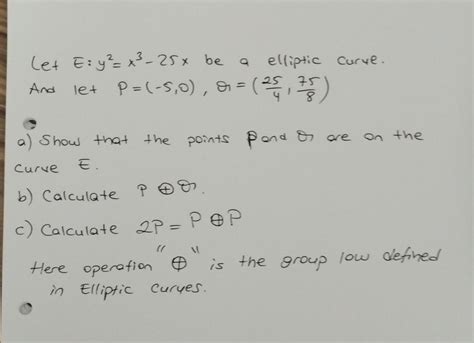 Let E: y² = x³ - 25x be a elliptic curve.
And let P = (-5,0), Q = (25/4, 75/8)
a) Show that the points P and Q are on the
curve E.
b) Calculate P ⊕ Q.
c) Calculate 2P = P ⊕ P
Here operation "⊕" is the group low defined
in Elliptic Curves.